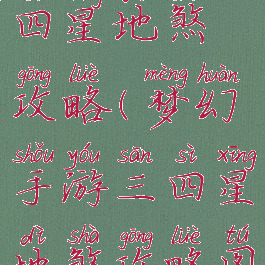 四星地煞
gōng lüè mèng huàn
攻略(梦幻
shǒu yóu sān sì xīng
手游三四星
dì shà gōng lüè tú
地煞攻略图